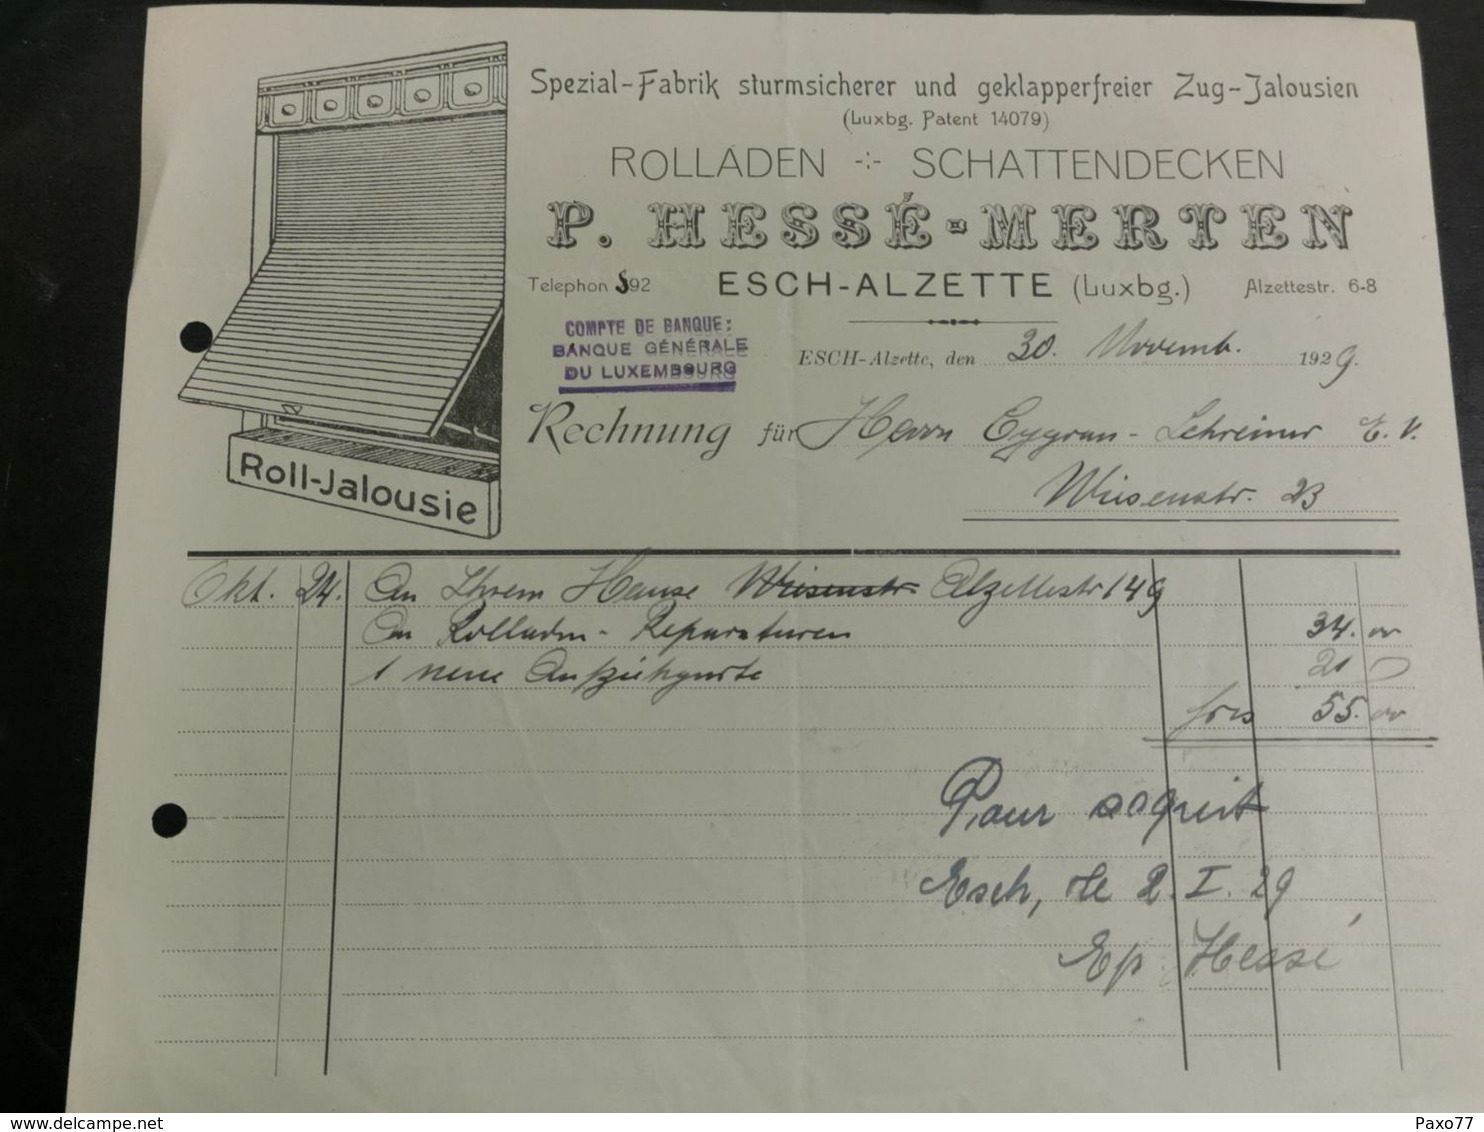 Spezial-Fabrik sturmsicherer und geklapperfreier Zug-Jalousien
(Luxbg. Patent 14079)
ROLLADEN -:- SCHATTENDECKEN
P. HESSÉ-MERTEN
Telephon 892 ESCH-ALZETTE (Luxbg.) Alzettestr. 6-8
COMPTE DE BANQUE:
BANQUE GÉNÉRALE
DU LUXEMBOURG
ESCH-Alzette, den 30. Novemb. 1929.
Rechnung für Herrn Schreiner E. V.
Wiesenstr. 23
Roll-Jalousie
Okt. 24. An Ihrem Hause Wiesenstr Alzettestr 149
An Rolladen-Reparaturen 34.00
1 neue Aufziehgurte 21
frcs 55.00
Pour acquit
Esch, le 2. I. 29
Hessé
www.delcampe.net
Paxo77